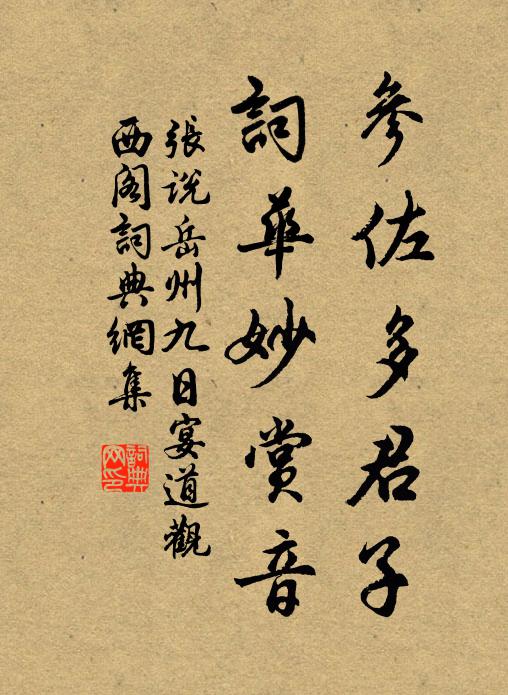 參佐多君子
詞華妙賞音
張說岳州九日宴道觀
西阁詞典網集
詞典网印